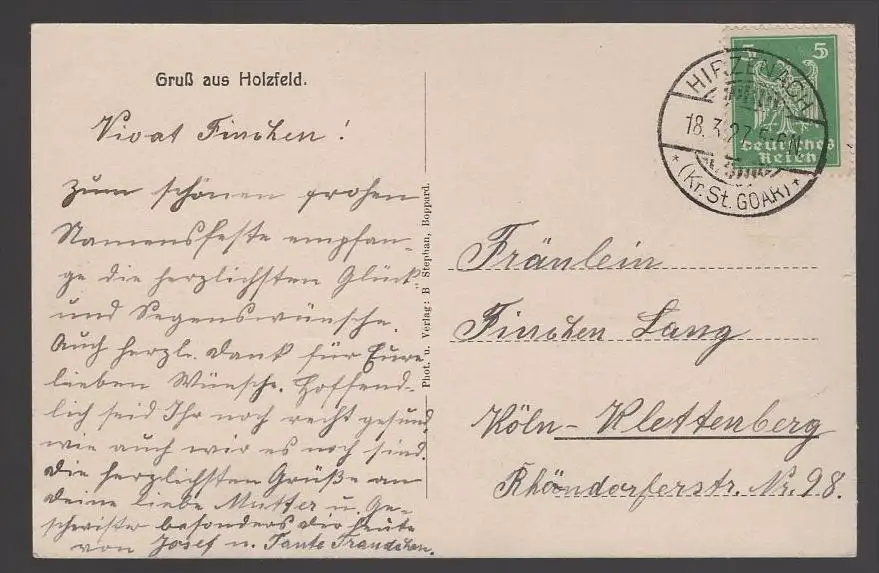 Gruß aus Holzfeld.
Vivat Finchen!
Zum schönen frohen
Namensfeste empfan-
ge die herzlichsten Glück-
und Segenswünsche.
Auch herzl. Dank für Eure
lieben Wünsche. Hoffend-
lich seid Ihr noch recht gesund,
wie auch wir es noch sind.
Die herzlichsten Grüße an
Deine liebe Mutter u. Ge-
schwister besonders Dir heute
von Josef u. Tante Tranchen.
Phot. u. Verlag: B Stephan, Boppard.
5 5
Deutsches
Reich
HIRZENACH
18.3.27.5-6N
* (Kr. St. GOAR) *
Fräulein
Finchen Lang
Köln-Klettenberg
Rhöndorferstr. Nr. 98.